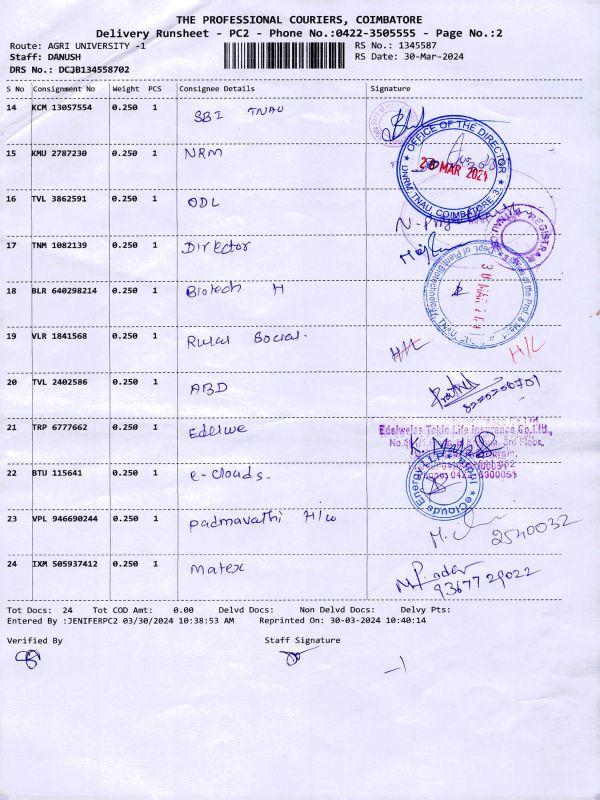 THE PROFESSIONAL COURIERS, COIMBATORE
Delivery Runsheet - PC2 - Phone No.:0422-3505555 - Page No.:2
Route: AGRI UNIVERSITY -1
Staff: DANUSH
DRS No.: DCJB134558702
RS No.: 1345587
RS Date: 30-Mar-2024
S No Consignment No Weight PCS Consignee Details Signature
14 KCM 13057554 0.250 1 SBI TNAU
15 KMU 2787230 0.250 1 NRM
OFFICE OF THE DIRECTOR
MAR 2024
TNAU, COIMBATORE 3.
16 TVL 3862591 0.250 1 ODL
REGISTRAR
17 TNM 1082139 0.250 1 Director
18 BLR 640298214 0.250 1 Biotech H
19 VLR 1841568 0.250 1 Rural Social.
H/L H/L
20 TVL 2402586 0.250 1 ABD
8220206701
21 TRP 6777662 0.250 1 Edelwe
Edelweiss Tokio Life Insurance Co.Ltd.,
22 BTU 115641 0.250 1 e-clouds.
eClouds Energy LLP
23 VPL 946690244 0.250 1 padmavathi H/w
2540032
24 IXM 505937412 0.250 1 Matex
9367729022
Tot Docs: 24 Tot COD Amt: 0.00 Delvd Docs: Non Delvd Docs: Delvy Pts:
Entered By :JENIFERPC2 03/30/2024 10:38:53 AM Reprinted On: 30-03-2024 10:40:14
Verified By Staff Signature